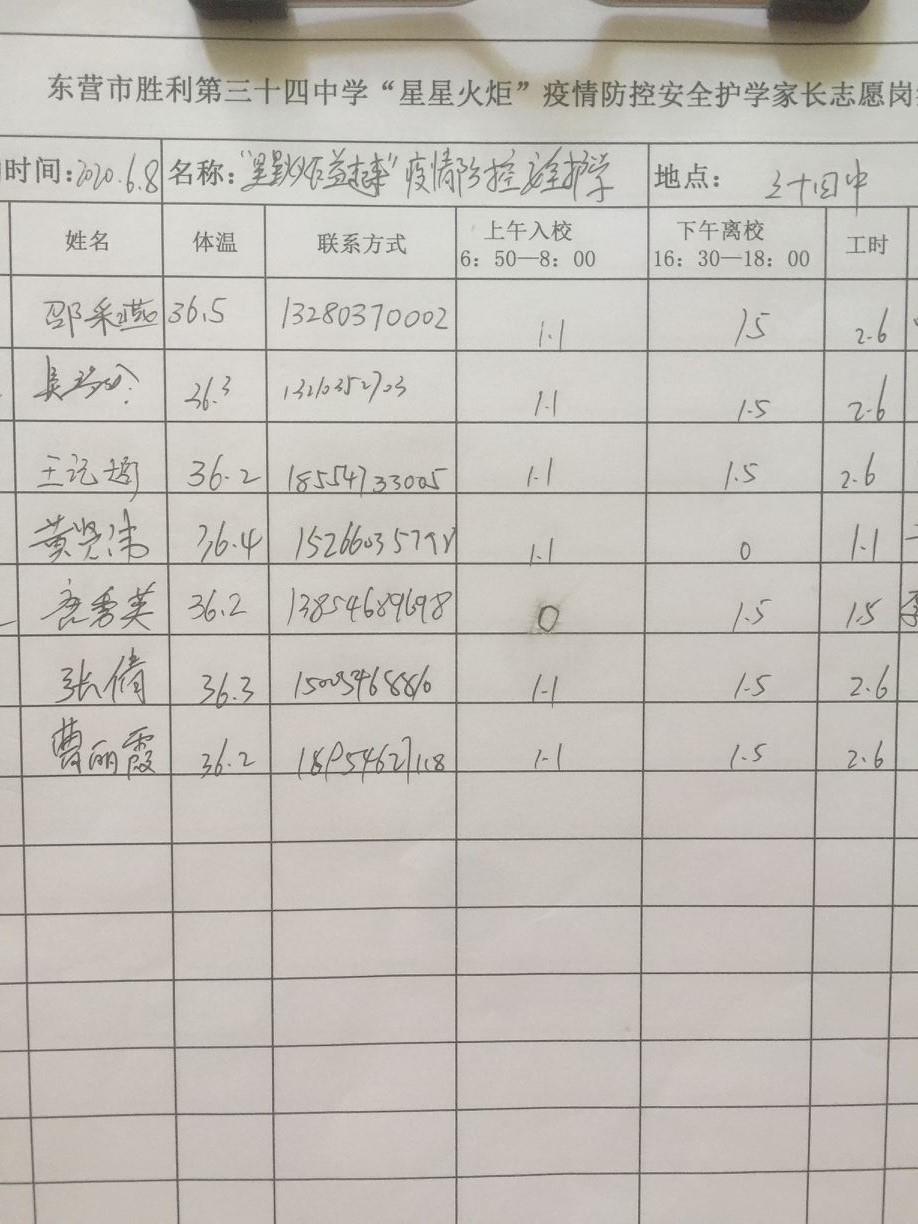 东营市胜利第三十四中学“星星火炬”疫情防控安全护学家长志愿岗
时间：2020.6.8 名称： 疫情防控安全护学 地点： 三十四中
姓名 体温 联系方式 上午入校 6：50—8：00 下午离校 16：30—18：00 工时
邵采燕 36.5 13280370002 1.1 1.5 2.6
36.3 1.1 1.5 2.6
王 36.2 18554733005 1.1 1.5 2.6
黄贤沛 36.4 1.1 0 1.1
唐秀英 36.2 13854689698 0 1.5 1.5
张倩 36.3 1.1 1.5 2.6
曹丽霞 36.2 1.1 1.5 2.6